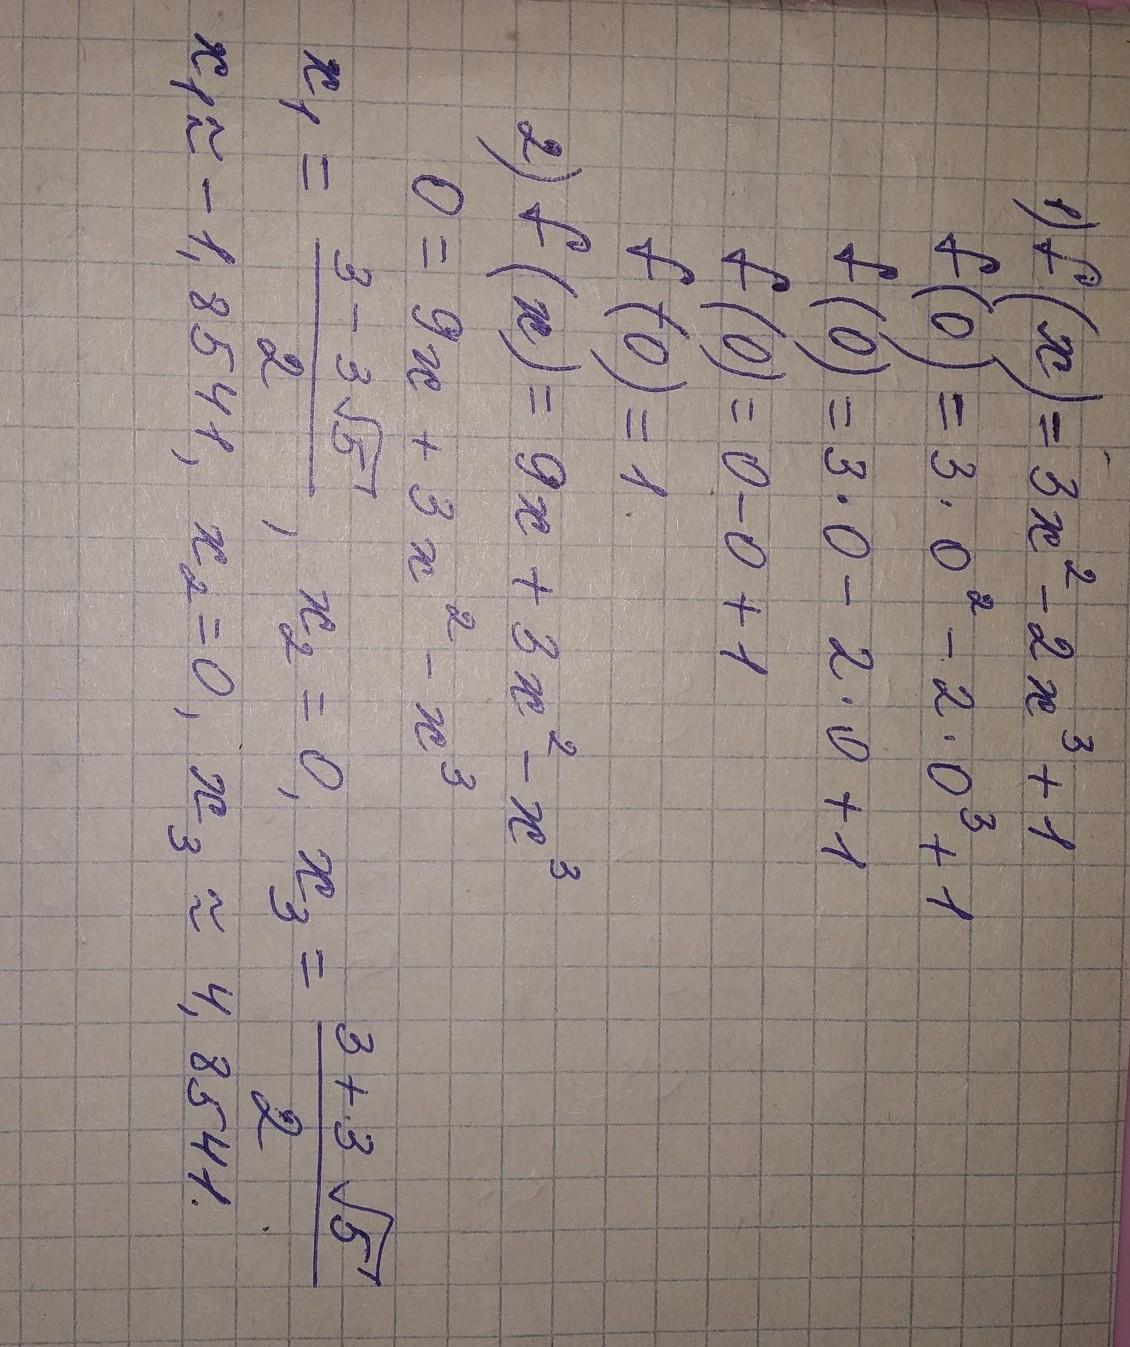 1) f(x) = 3x² - 2x³ + 1
f(0) = 3 · 0² - 2 · 0³ + 1
f(0) = 3 · 0 - 2 · 0 + 1
f(0) = 0 - 0 + 1
f(0) = 1.
2) f(x) = 9x + 3x² - x³
0 = 9x + 3x² - x³
x₁ = (3 - 3√5)/2, x₂ = 0, x₃ = (3 + 3√5)/2
x₁ ≈ -1,8541, x₂ = 0, x₃ ≈ 4,8541.